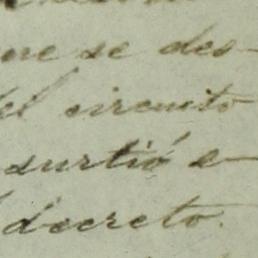 se des-
del circuito
surtió e-
decreto.